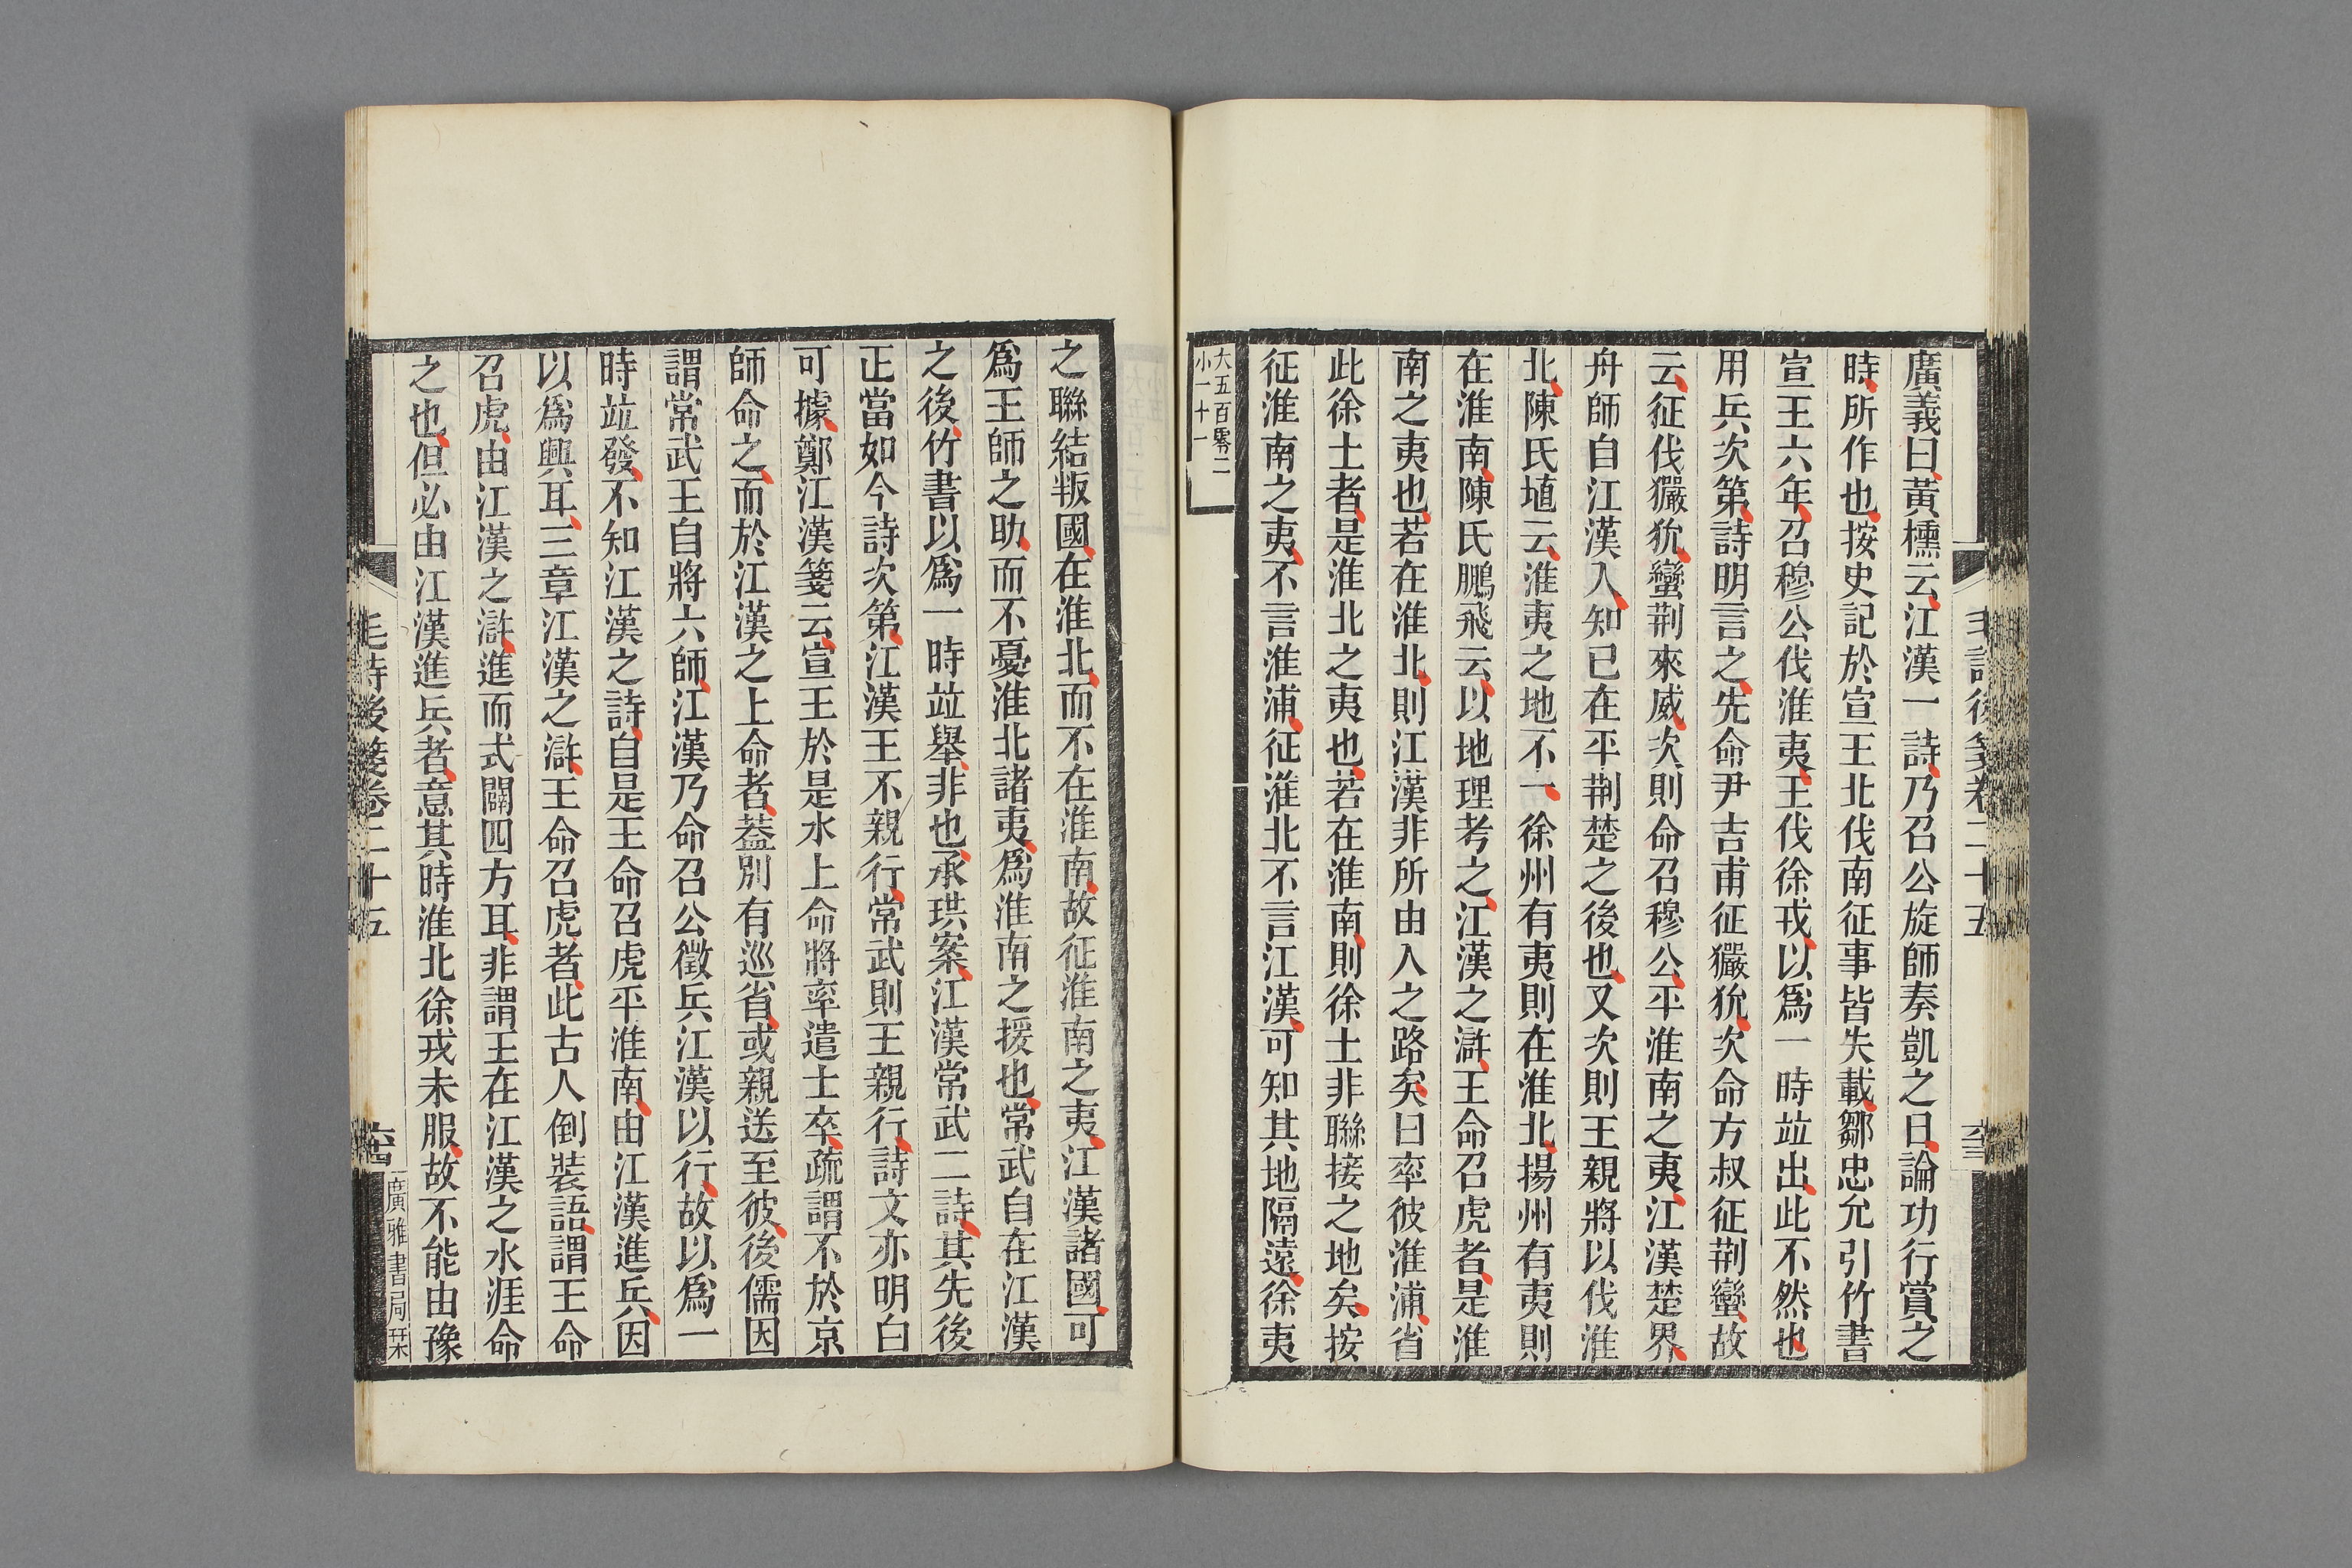 毛詩後箋卷二十五
廣義曰黃櫄云江漢一詩乃召公旋師奏凱之日論功行賞之
時所作也按史記於宣王北伐南征事皆失載鄒忠允引竹書
宣王六年召穆公伐淮夷王伐徐戎以爲一時竝出此不然也
用兵次第詩明言之先命尹吉甫征玁狁次命方叔征荆蠻故
云征伐玁狁蠻荆來威次則命召穆公平淮南之夷江漢楚界
舟師自江漢入知已在平荆楚之後也又次則王親將以伐淮
北陳氏埴云淮夷之地不一徐州有夷則在淮北揚州有夷則
在淮南陳氏鵬飛云以地理考之江漢之滸王命召虎者是淮
南之夷也若在淮北則江漢非所由入之路矣曰率彼淮浦省
此徐土者是淮北之夷也若在淮南則徐土非聯接之地矣按
征淮南之夷不言淮浦征淮北不言江漢可知其地隔遠徐夷
大五百零二
小一十一
之聯結叛國在淮北而不在淮南故征淮南之夷江漢諸國可
爲王師之助而不憂淮北諸夷爲淮南之援也常武自在江漢
之後竹書以爲一時竝舉非也承珙案江漢常武二詩其先後
正當如今詩次第江漢王不親行常武則王親行詩文亦明白
可據鄭江漢箋云宣王於是水上命將率遣士卒疏謂不於京
師命之而於江漢之上命者蓋別有巡省或親送至彼後儒因
謂常武王自將六師江漢乃命召公徵兵江漢以行故以爲一
時竝發不知江漢之詩自是王命召虎平淮南由江漢進兵因
以爲興耳三章江漢之滸王命召虎者此古人倒裝語謂王命
召虎由江漢之滸進而式闢四方耳非謂王在江漢之水涯命
之也但必由江漢進兵者意其時淮北徐戎未服故不能由豫
毛詩後箋卷二十五
廣雅書局栞